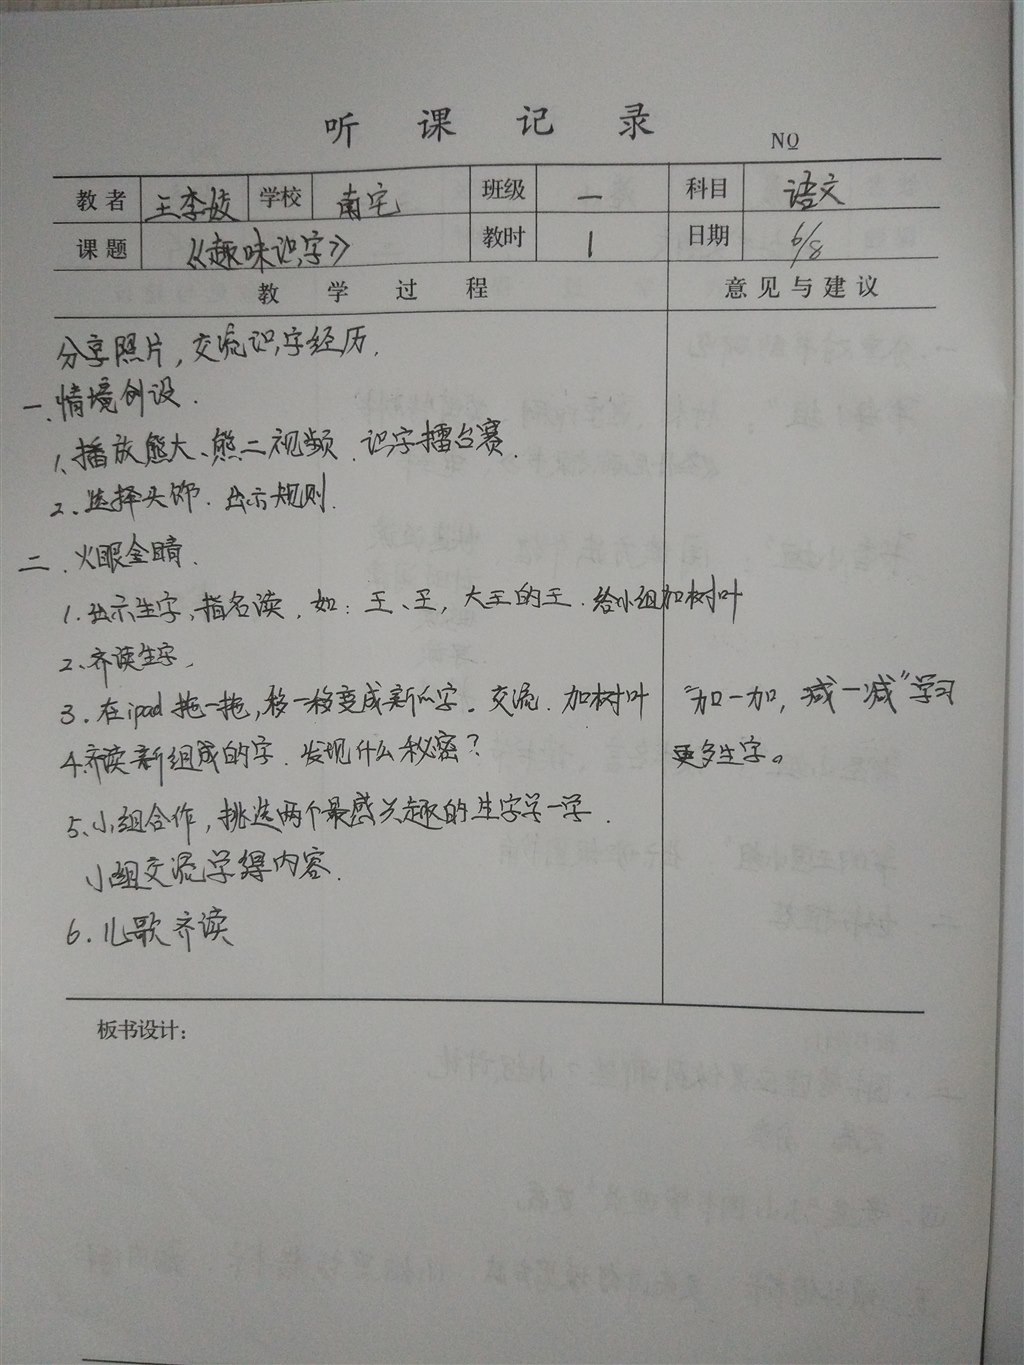 听课记录
NO
教者 王李 学校 南宅 班级 一 科目 语文
课题 《趣味识字》 教时 1 日期 6/8
教学过程 意见与建议
分享照片，交流识字经历.
一、情境创设.
1、播放熊大、熊二视频、识字擂台赛.
2、选择头饰、出示规则.
二、火眼金睛.
1.出示生字、指名读，如：王、王，大王的王.给小组加树叶
2、齐读生字，
3.在ipad拖一拖，移一移变成新的字。交流.加树叶 "加一加，减一减"学习
4.齐读新组成的字、发现什么秘密？ 更多生字。
5、小组合作，挑选两个最感兴趣的生字学一学.
小组交流学得内容.
6.儿歌齐读
板书设计：